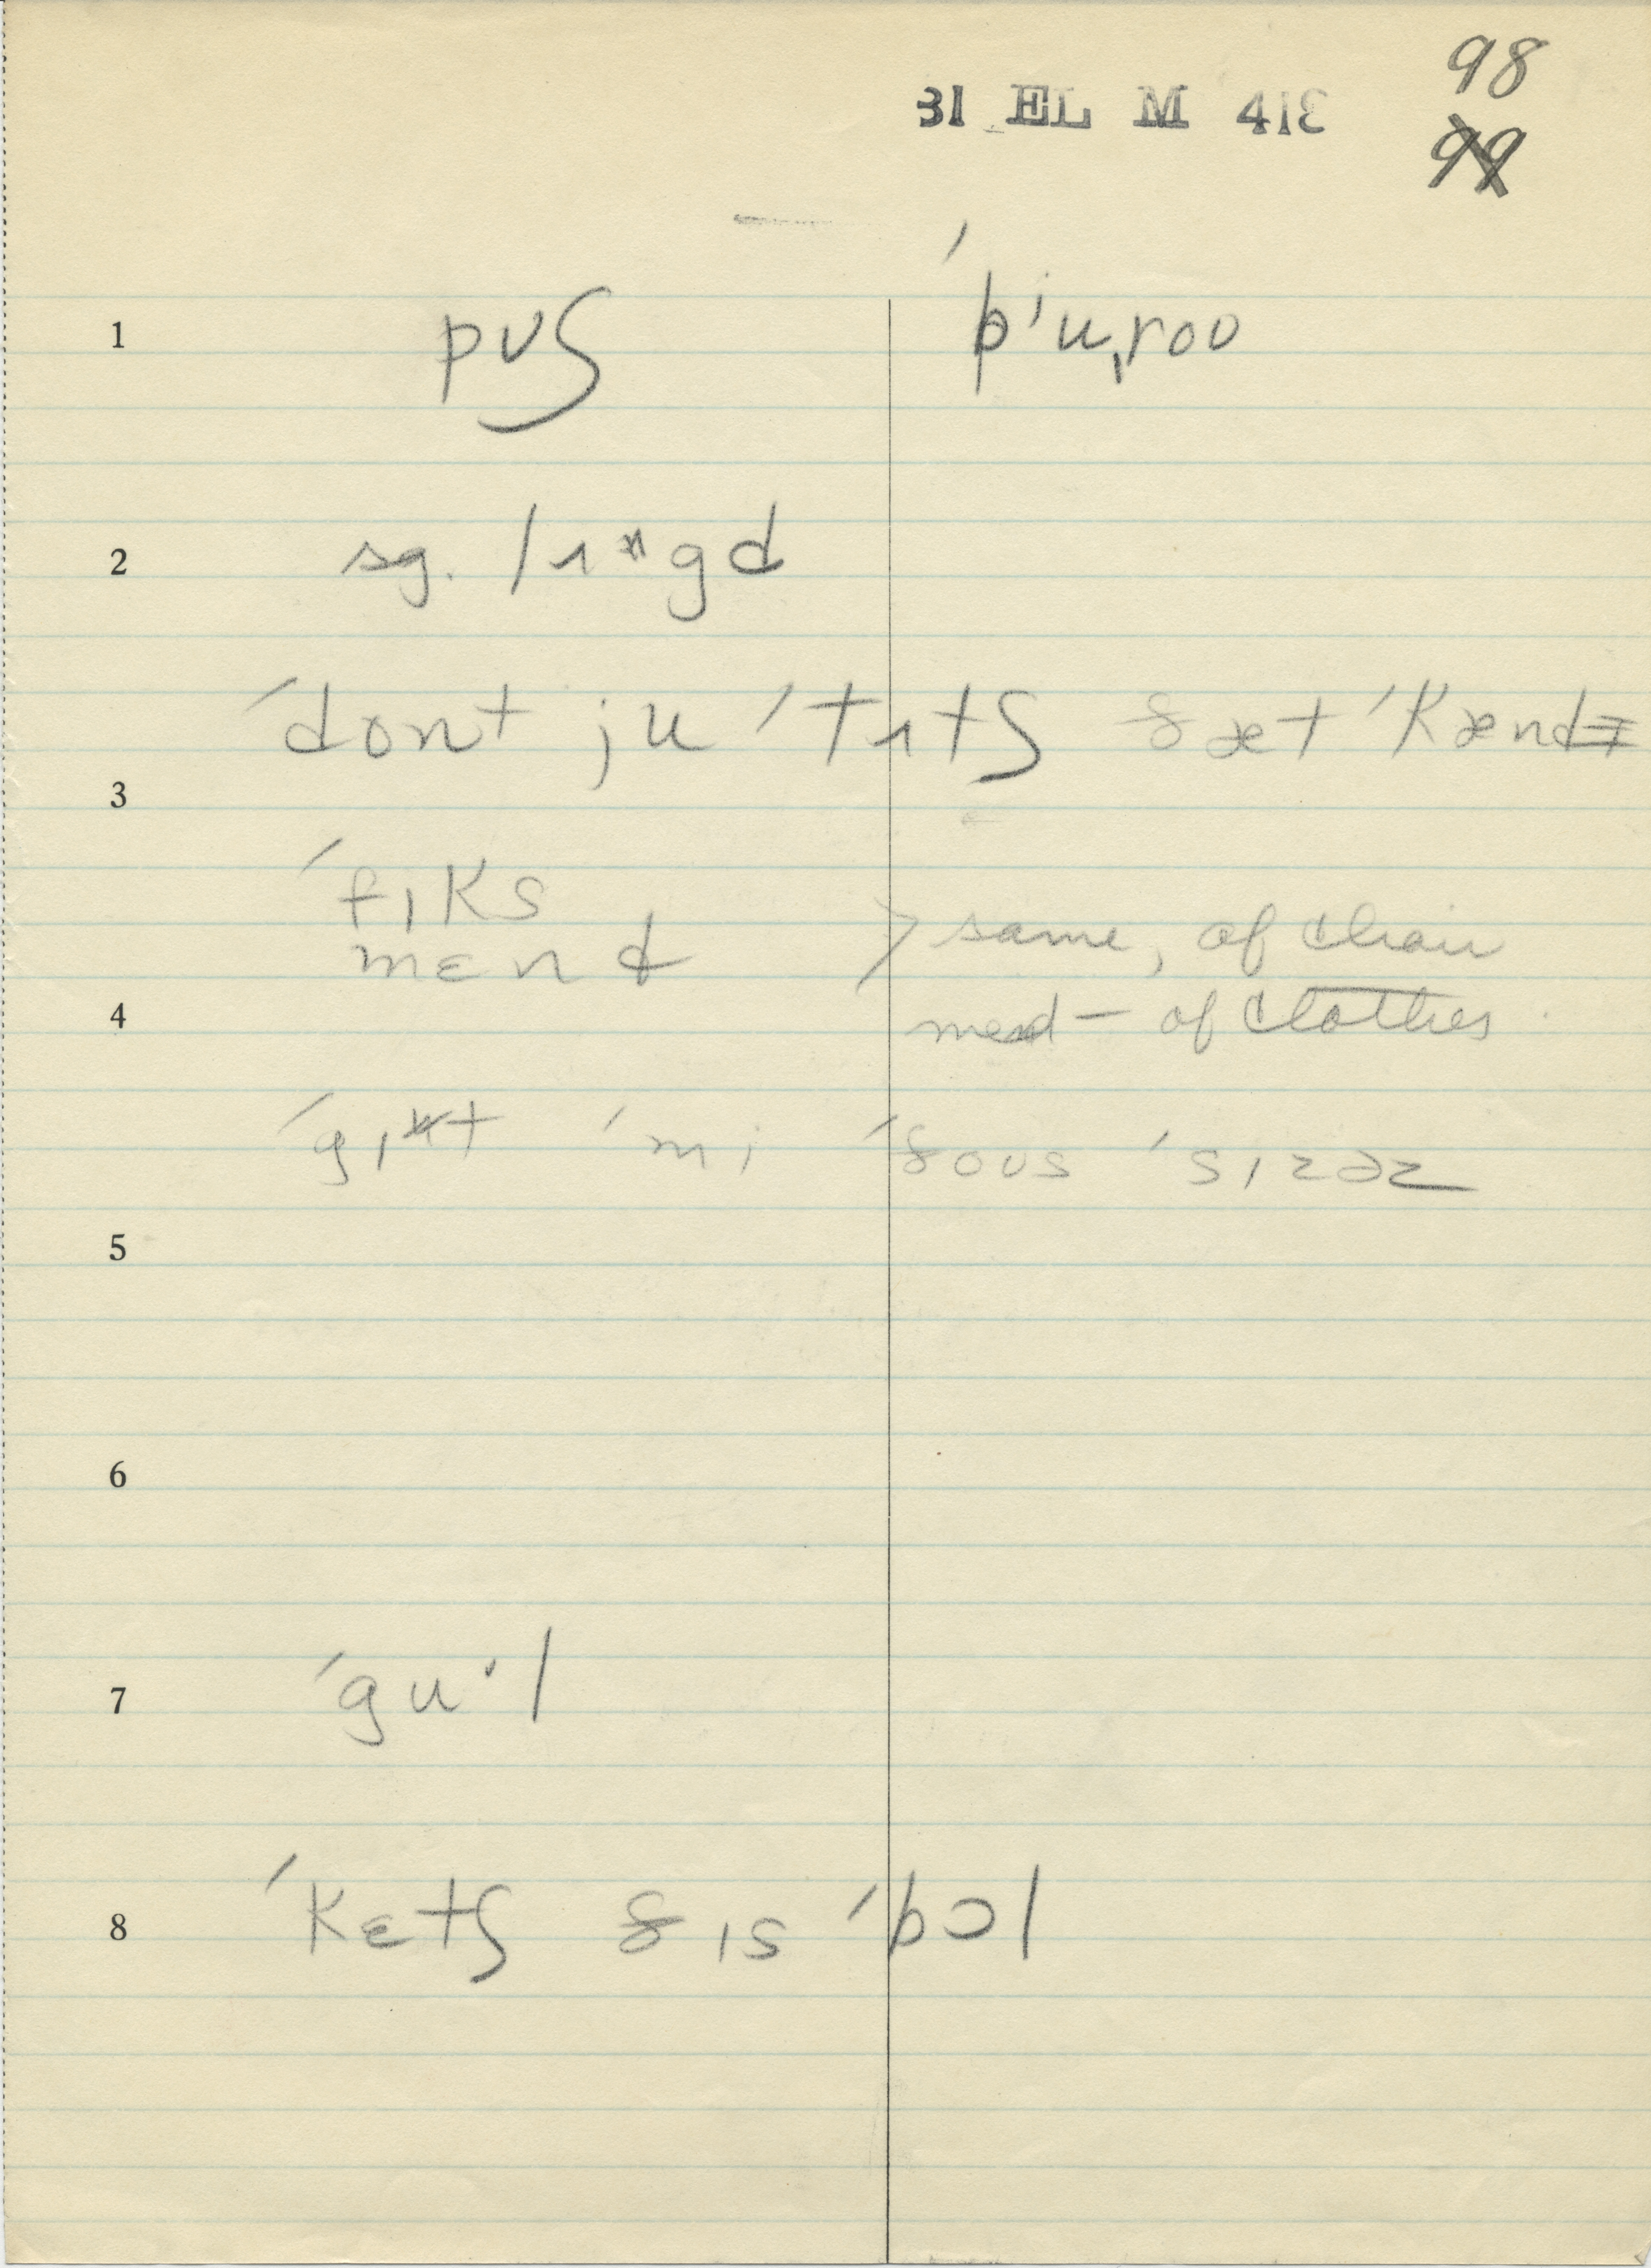 98
31 EL M 418
99
1 pʊʃ ˈbˈuˌroʊ
2 sg. lɪᵊgd
ˈdont ju ˈtɪtʃ ðæt ˈkænd
3
ˈfɪks
mɛnd > same, of chair
4 mend – of clothes
ˈgɪᵊt ˈmi ˈðoʊs ˈsɪzəz
5
6
7 ˈguˑl
8 ˈkɛtʃ ðɪs ˈbɔl